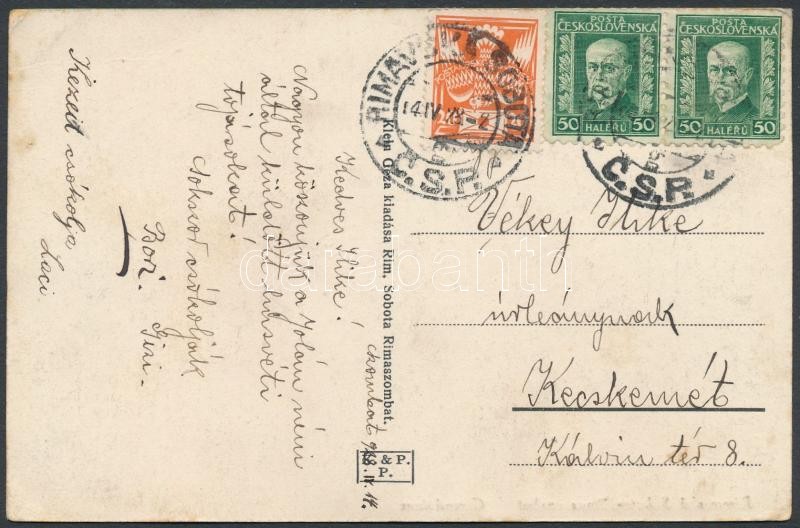 POSTA ČESKOSLOVENSKÁ
50 HALÉRŮ 50
POSTA ČESKOSLOVENSKÁ
50 HALÉRŮ 50
RIMAVSKÁ SOBOTA
14.IV.28.-2
Č.S.P.
Č.S.P.
Szombat 928.IV.14.
Kedves Ilike!
Nagyon köszönjük a Jolán néni
által küldött húsvéti
tojásokat!
Sokszor csókolják
Bözi. Gizi.
Kezeit csókolja
Laci
Klein Géza kiadása Rim. Sobota Rimaszombat.
& P.
P.
Vékey Ilike
úrleánynak
Kecskemét
Kálvin tér 8.
darabanth